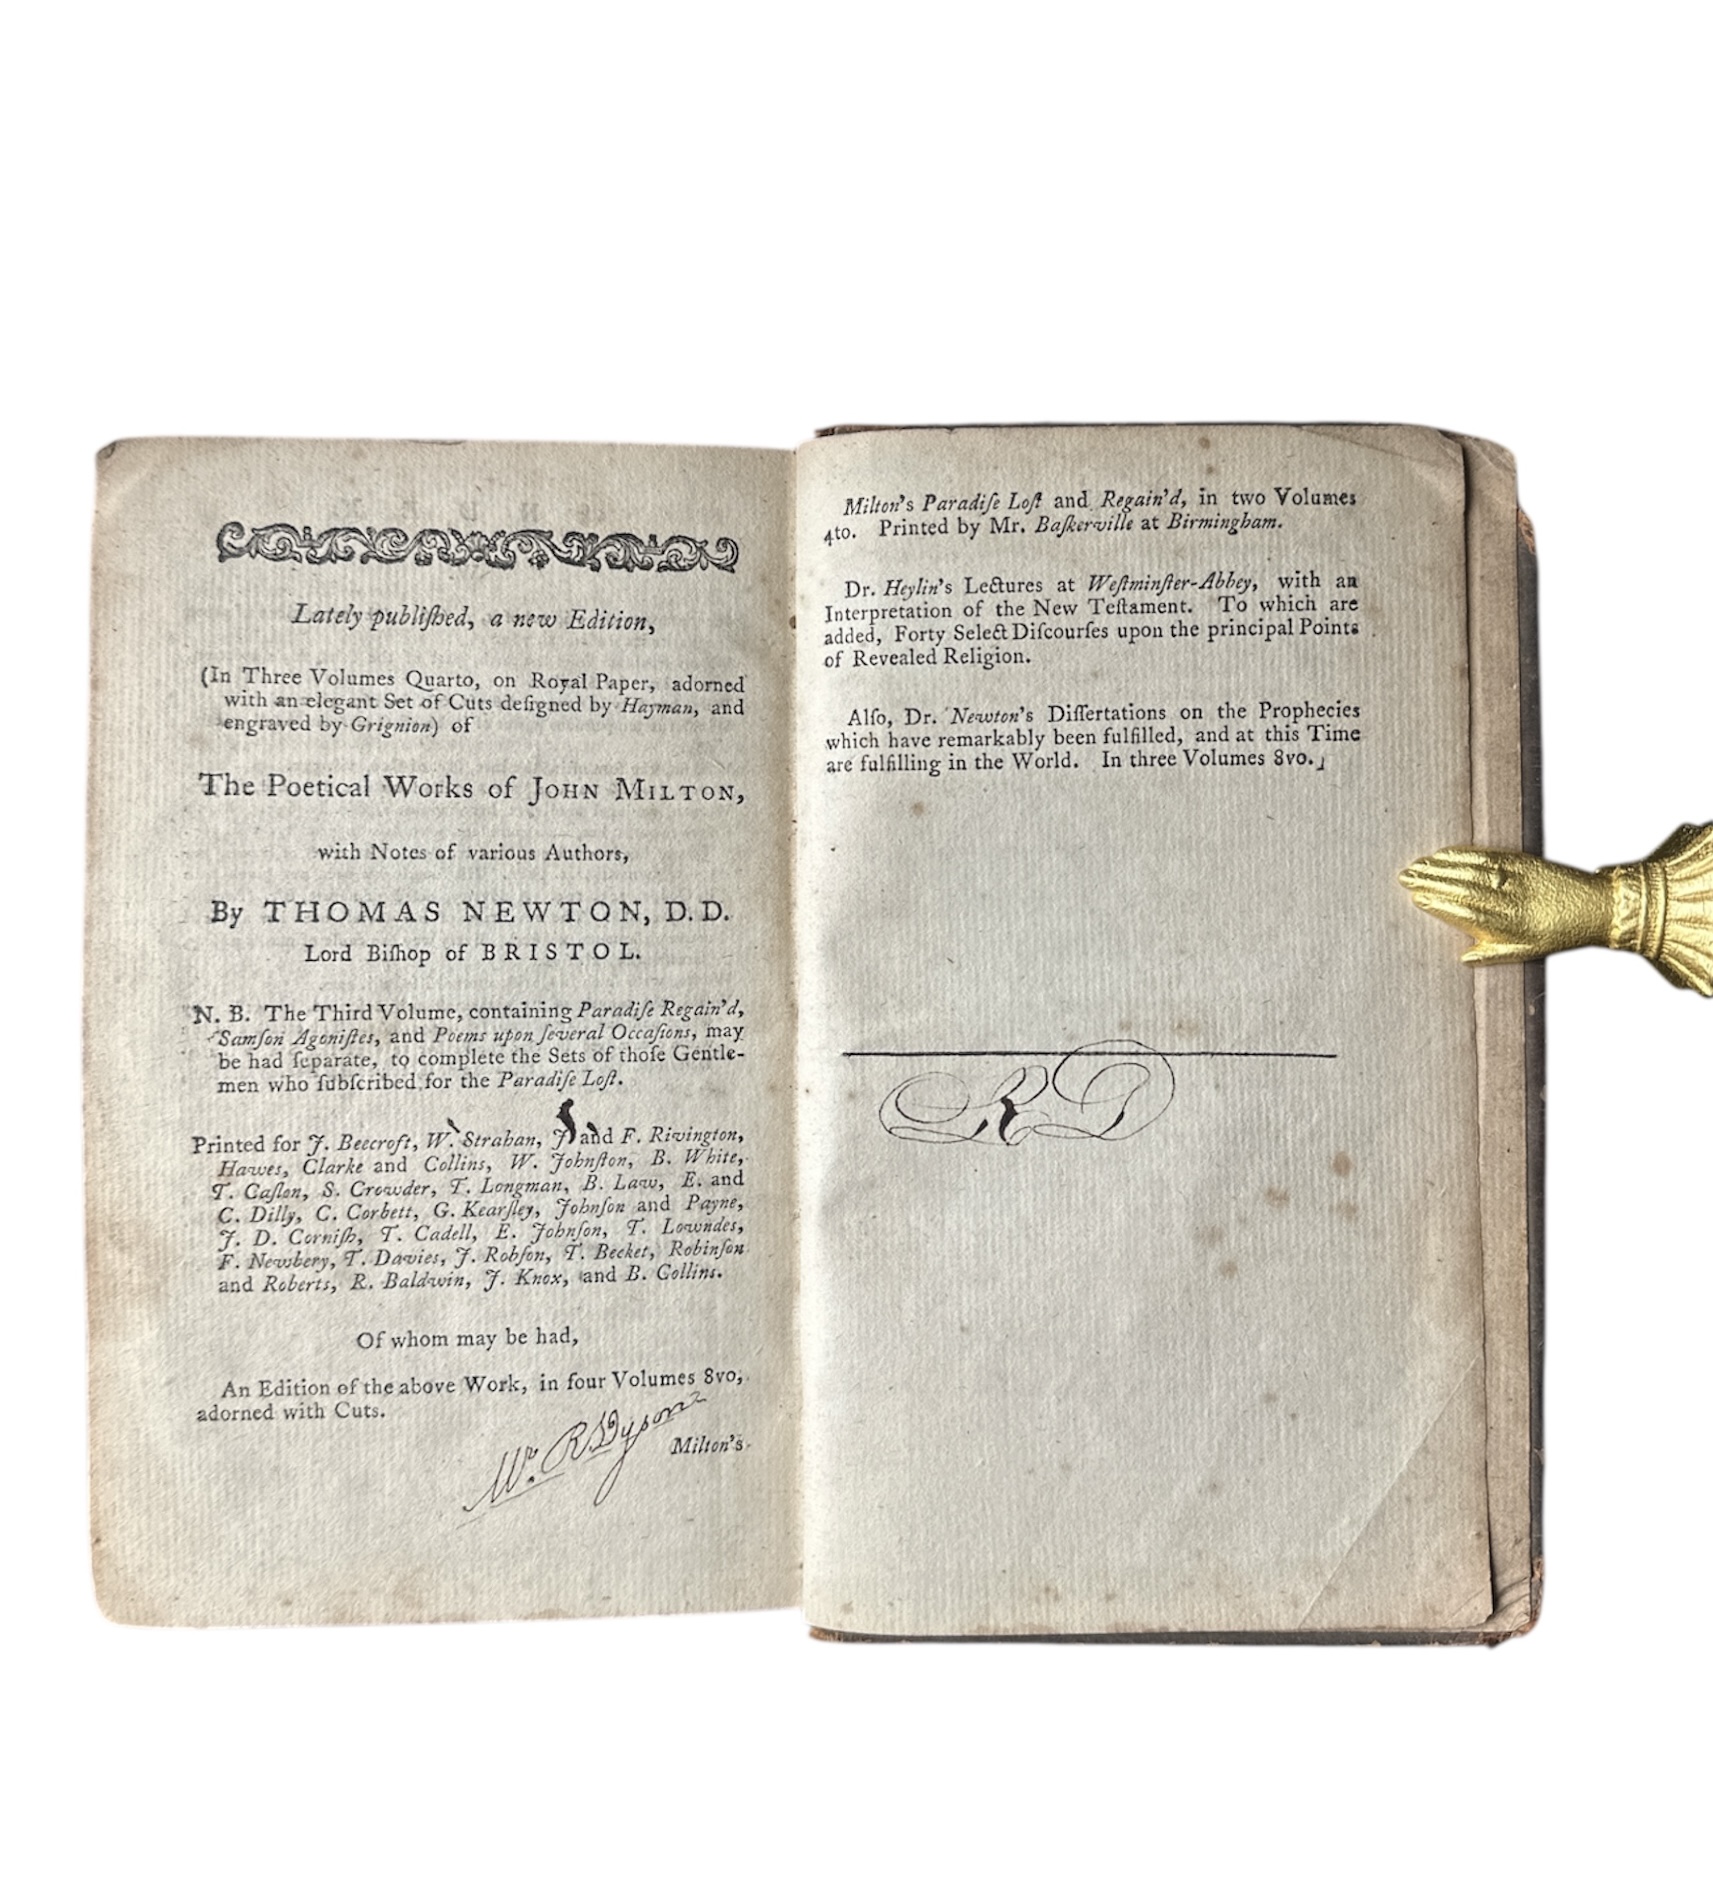 Lately publiſhed, a new Edition,
(In Three Volumes Quarto, on Royal Paper, adorned
with an elegant Set of Cuts deſigned by Hayman, and
engraved by Grignion) of
The Poetical Works of JOHN MILTON,
with Notes of various Authors,
By THOMAS NEWTON, D.D.
Lord Biſhop of BRISTOL.
N. B. The Third Volume, containing Paradiſe Regain'd,
Samſon Agoniſtes, and Poems upon ſeveral Occaſions, may
be had ſeparate, to complete the Sets of thoſe Gentle-
men who ſubſcribed for the Paradiſe Loſt.
Printed for J. Beecroft, W. Strahan, J. and F. Rivington,
Hawes, Clarke and Collins, W. Johnſton, B. White,
T. Caſlon, S. Crowder, T. Longman, B. Law, E. and
C. Dilly, C. Corbett, G. Kearſley, Johnſon and Payne,
J. D. Corniſh, T. Cadell, E. Johnſon, T. Lowndes,
F. Newbery, T. Davies, J. Robſon, T. Becket, Robinſon
and Roberts, R. Baldwin, J. Knox, and B. Collins.
Of whom may be had,
An Edition of the above Work, in four Volumes 8vo,
adorned with Cuts.
Wm. R Dyson
Milton's
Milton's Paradiſe Loſt and Regain'd, in two Volumes
4to. Printed by Mr. Baſkerville at Birmingham.
Dr. Heylin's Lectures at Weſtminſter-Abbey, with an
Interpretation of the New Teſtament. To which are
added, Forty Select Diſcourſes upon the principal Points
of Revealed Religion.
Alſo, Dr. Newton's Diſſertations on the Prophecies
which have remarkably been fulfilled, and at this Time
are fulfilling in the World. In three Volumes 8vo.
RD